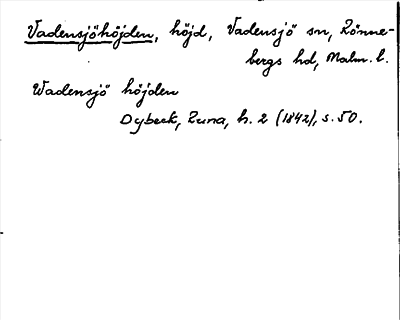 Vadensjöhöjden, höjd, Vadensjö sn, Rönne-
bergs hd, Malm. l.
Wadensjö höjden
Dybeck, Runa, h. 2 (1842), s. 50.